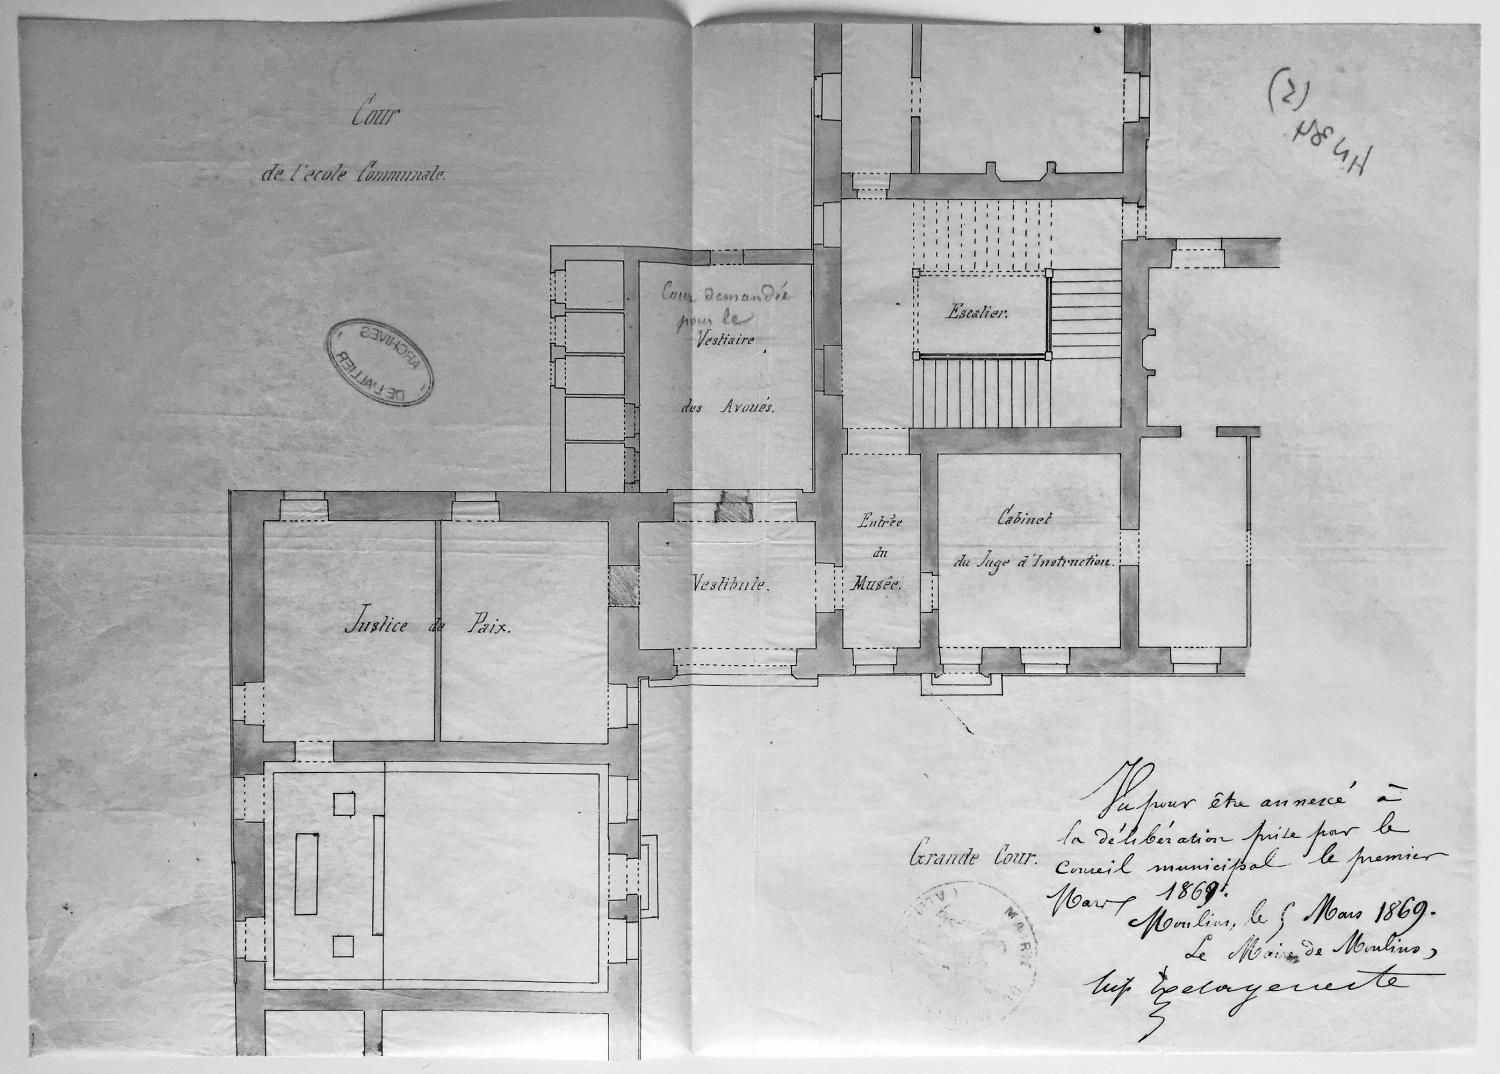 Cour
de l'ecole Communale.
ARCHIVES
DE L'ALLIER
Cour demandée
pour le
Vestiaire
des Avoués.
Escalier.
Entrée
du
Musée.
Cabinet
du Juge d'Instruction.
Vestibule.
Justice de Paix.
Grande Cour.
Vu pour être annexé à
la délibération prise par le
conseil municipal le premier
Mars 1869.
Moulins, le 5 Mars 1869.
Le Maire de Moulins,
MAIRIE DE
(2)